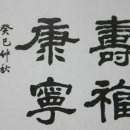 壽福
康寧
癸巳仲秋